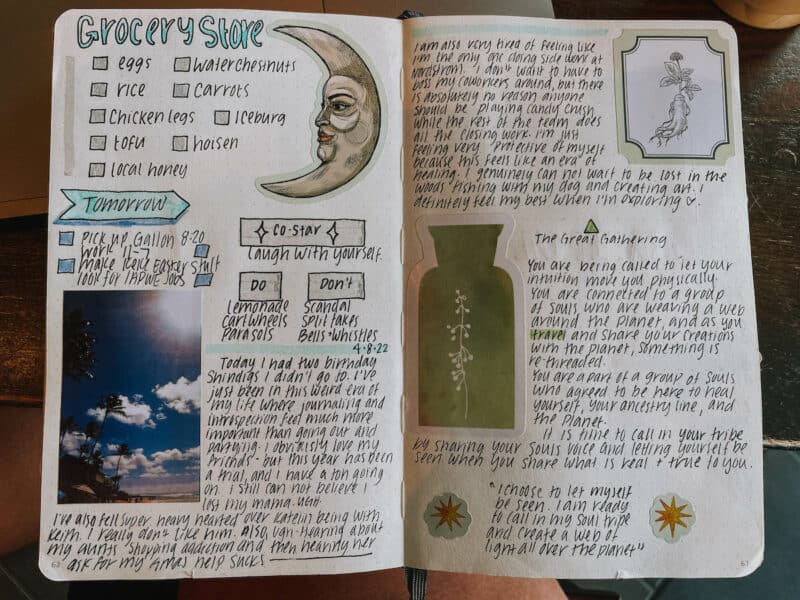 Grocery Store
eggs
waterchestnuts
rice
carrots
Chicken legs
Iceburg
tofu
hoisen
local honey
Tomorrow
Pick up Gallon 8-20
work 11-7
make Keke Easter Stuff
look for Jobs
Co-Star
laugh with yourself.
Do
Don't
Lemonade
Cartwheels
Parasols
Scandal
Split takes
Bells + Whistles
4.8.22
Today I had two birthday
Shindigs I didn't go to. I've
just been in this weird era of
my life where journaling and
introspection feel much more
important than going out and
partying. I obviously love my
friends - but this year has been
a trial, and I have a ton going
on. I still can not believe I
lost my mama. ugh
I've also felt super heavy hearted over Katelin being with
Keith. I really don't like him. Also, ugh-Hearing about
my aunts shopping addiction and then hearing her
ask for my $mas help sucks
62
I am also very tired of feeling like
I'm the only one doing side work at
nordstrom. I don't want to have to
boss my coworkers around, but there
is absolutely no reason anyone
should be playing candy crush
while the rest of the team does
all the closing work. I'm just
feeling very protective of myself
because this feels like an era of
healing. I genuinely can not wait to be lost in the
woods fishing with my dog and creating art. I
definitely feel my best when I'm exploring ♡.
The Great Gathering
You are being called to let your
intuition move you physically.
You are connected to a group
of souls who are weaving a web
around the planet, and as you
travel and share your creations
with the planet, something is
re-threaded.
You are a part of a group of souls
who agreed to be here to heal
yourself, your ancestry line, and
the planet.
It is time to call in your tribe
by sharing your souls voice and letting yourself be
seen when you share what is real + true to you.
"I choose to let myself
be seen. I am ready
to call in my soul tribe
and create a web of
light all over the planet"
61